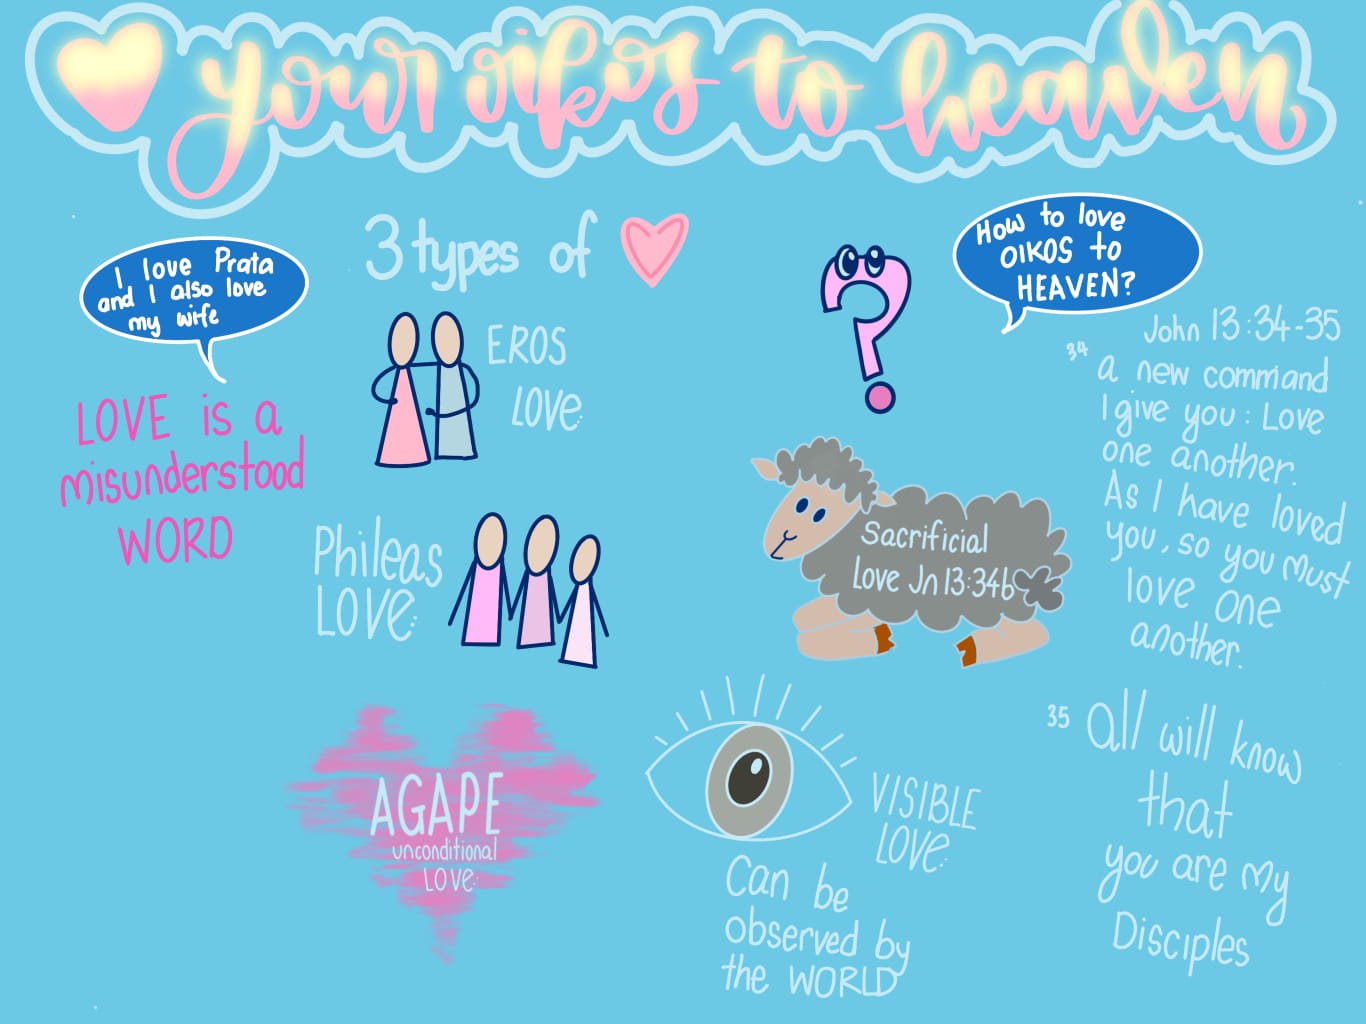 your oikos to heaven
I love Prata
and I also love
my wife
LOVE is a
misunderstood
WORD
3 types of
EROS
LOVE:
Phileas
LOVE:
AGAPE
unconditional
LOVE:
How to love
OIKOS to
HEAVEN?
Sacrificial
Love Jn 13:34b
VISIBLE
LOVE:
Can be
observed by
the WORLD
John 13:34-35
34
a new command
I give you: Love
one another.
As I have loved
you, so you must
love one
another.
35
all will know
that
you are my
Disciples